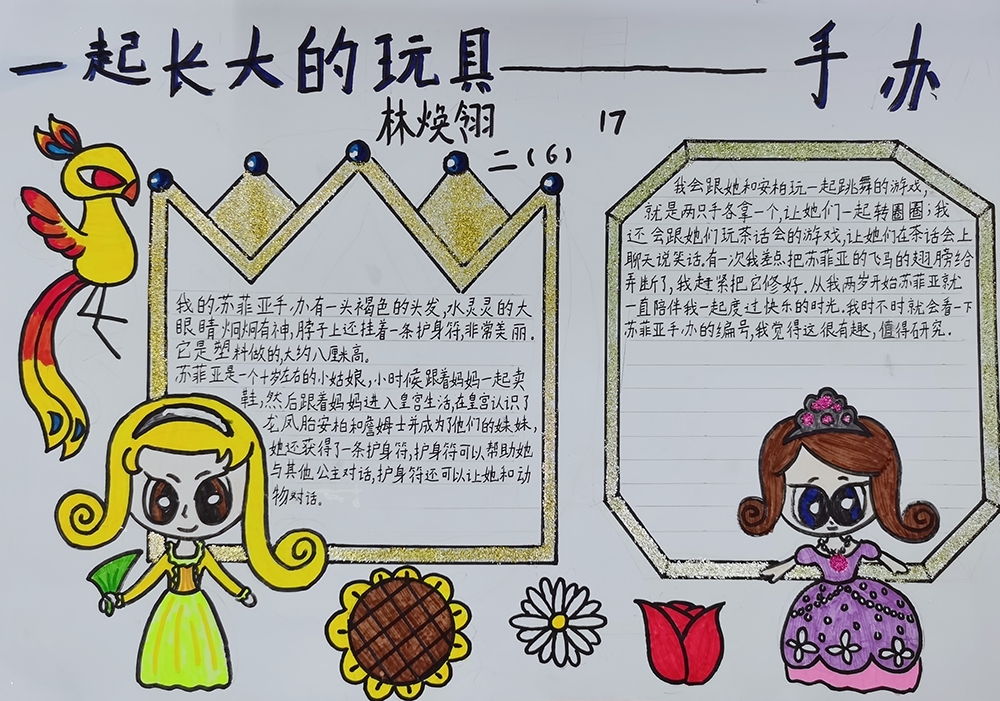 一起长大的玩具——手办
林焕翎 17
二(6)
我的苏菲亚手办有一头褐色的头发,水灵灵的大
眼睛炯炯有神,脖子上还挂着一条护身符,非常美丽.
它是塑料做的,大约八厘米高。
苏菲亚是一个十岁左右的小姑娘,小时候跟着妈妈一起卖
鞋,然后跟着妈妈进入皇宫生活,在皇宫认识了
龙凤胎安柏和詹姆士并成为了他们的妹妹,
她还获得了一条护身符,护身符可以帮助她
与其他公主对话,护身符还可以让她和动
物对话。
我会跟她和安柏玩一起跳舞的游戏,
就是两只手各拿一个,让她们一起转圈圈;我
还会跟她们玩茶话会的游戏,让她们在茶话会上
聊天说笑话.有一次我差点把苏菲亚的飞马的翅膀给
弄断了,我赶紧把它修好.从我两岁开始苏菲亚就
一直陪伴我一起度过快乐的时光.我时不时就会看一下
苏菲亚手办的编号,我觉得这很有趣,值得研究.